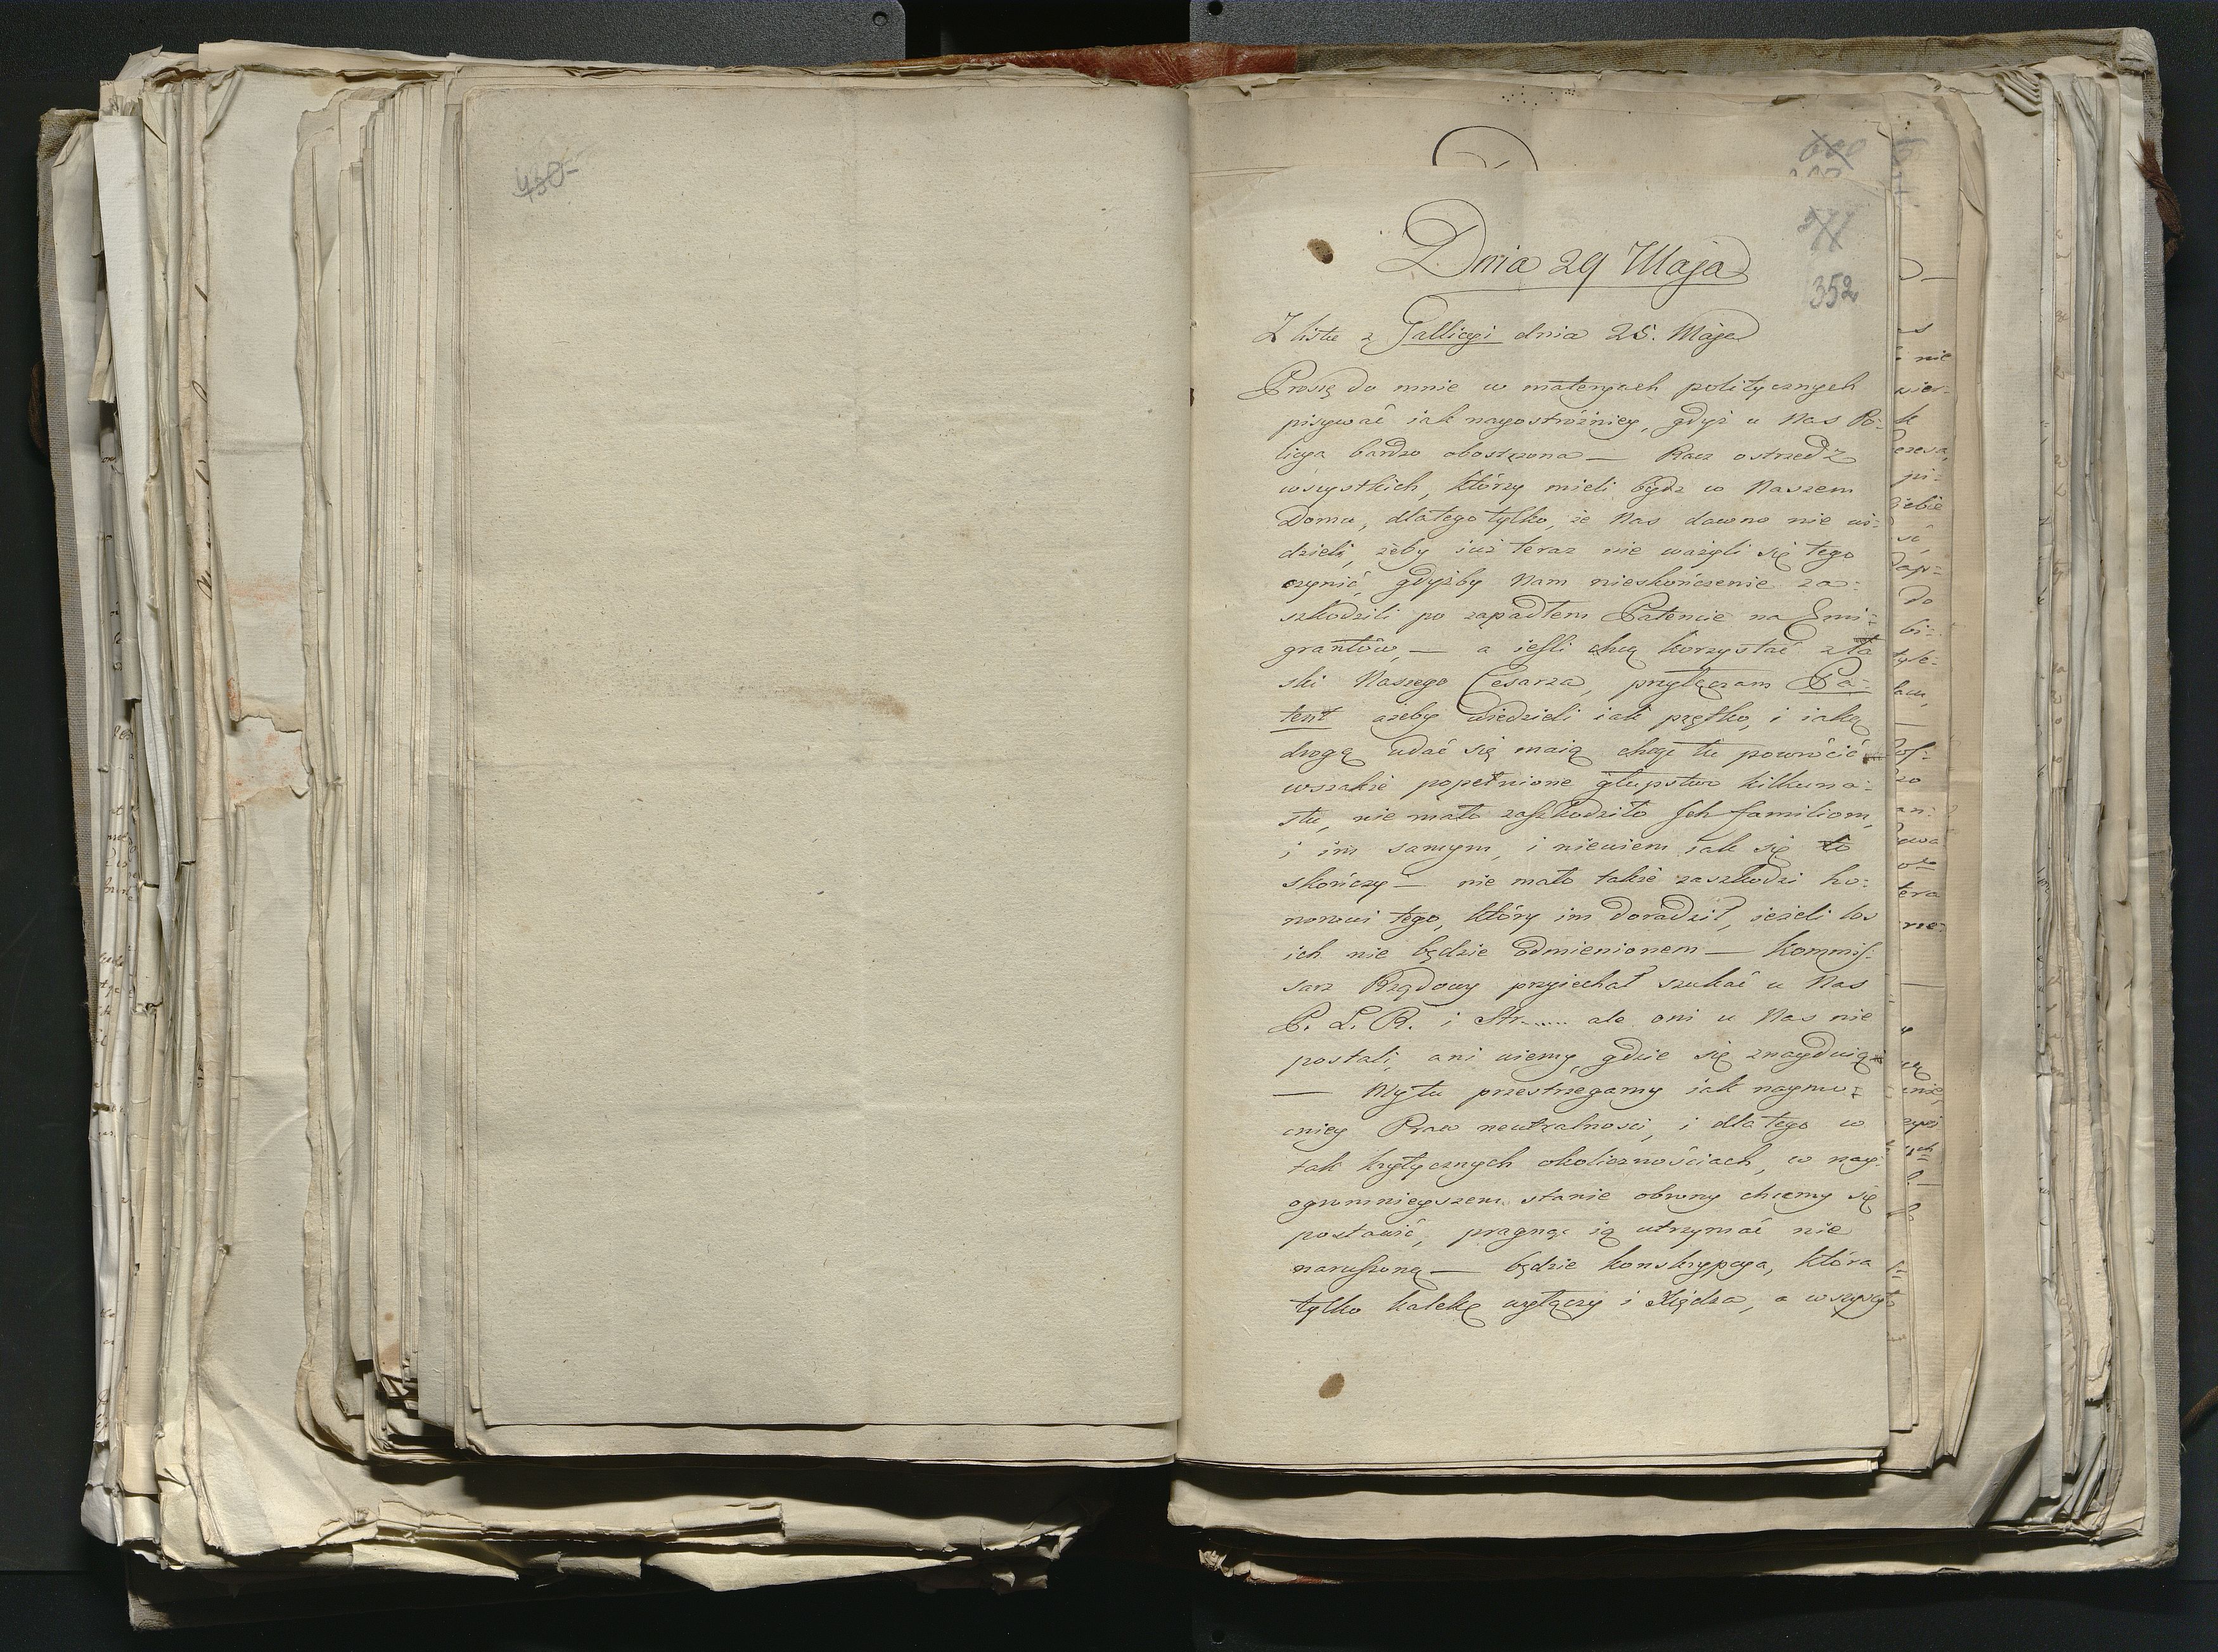 450
600
352
Dnia 29 Maja
Z listu z Gallicyi dnia 25. Maja
Proszę do mnie w materyach politycznych
pisywać iak nayostróżniey, gdyż u Nas Po-
licya bardzo obostrzona — Racz ostrzedz
wszystkich, którzy mieli bydz w Naszem
Domu, dlatego tylko, że Nas dawno nie wi-
dzieli, żeby iuż teraz nie ważyli się tego
czynić, gdyżby Nam nieskończenie za-
szkodzili po zapadłem Patencie na Emi-
grantów, — a iesli chcą korzystać z ła
ski Naszego Cesarza, przyłączam Pa-
tent ażeby wiedzieli iak prętko, i iaką
drogą udać się maią chcąc tu powrócić
wszakże popełnione głupstwo kilkuna-
stu, nie mało zaszkodziło Ich familiom,
i im samym, i niewiem iak się to
skończy — nie mało także zaszkodzi ho-
norowi tego, który im doradził, jeżeli los
ich nie będzie odmienionem — Kommis-
sarz Rządowy przyiechał szukać u Nas
P. L. R. i Str...... ale oni u Nas nie
postali, ani wiemy, gdzie się znayduią
— My tu przestrzegamy iak naymo-
cniey Praw neutralnosci, i dla tego w
tak krytycznych okolicznościach, w nay-
ogromnieyszem stanie obrony chcemy się
postawić, pragnąc ią utrzymać nie
naruszoną — będzie konskrypcya, która
tylko kalekę wyłączy i Xiędza, a wszyst